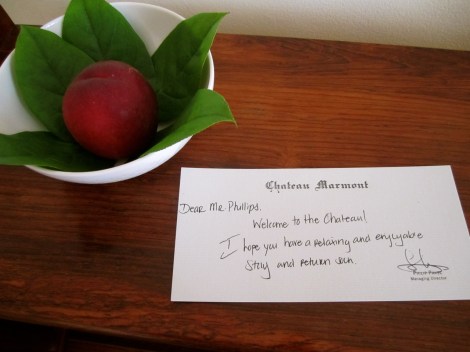 Chateau Marmont
Dear Mr Phillips,
Welcome to the Chateau!
I hope you have a relaxing and enjoyable
stay and return soon.
Managing Director